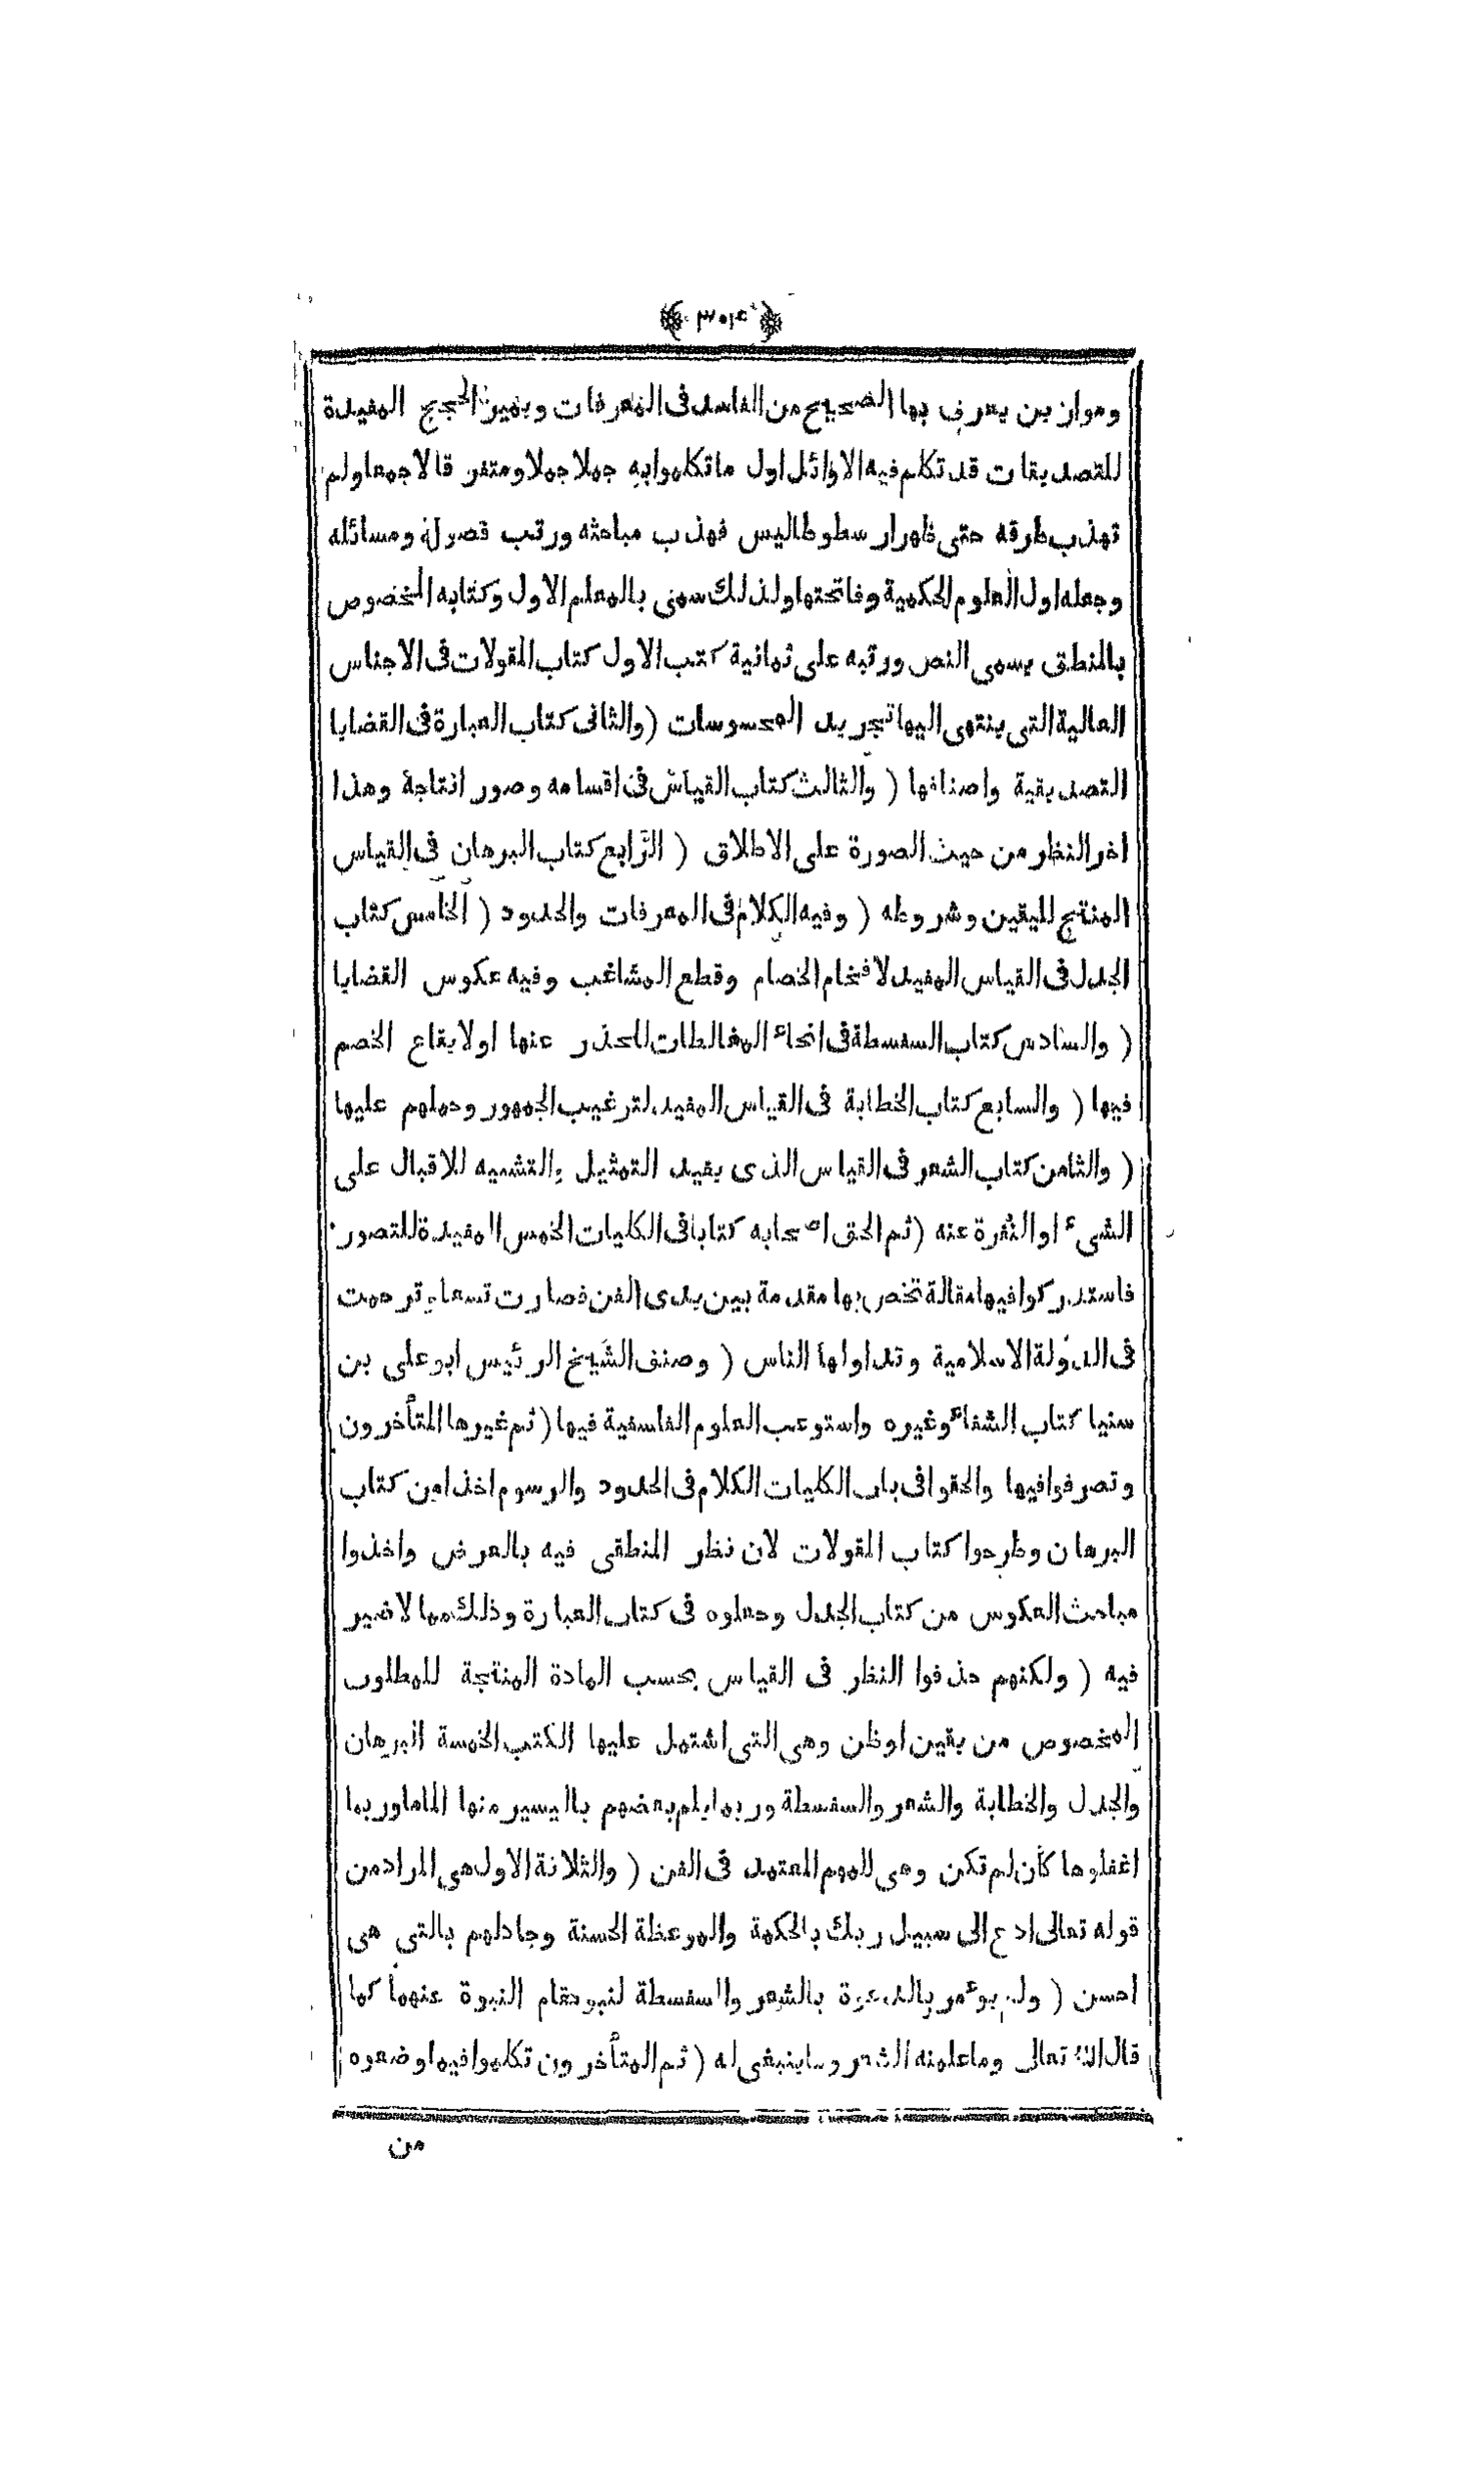 وموازين يعرف بها الصحيح من الفاسد فى المعرفات وبميز الحجج المفيدة
للتصديقات قد تكلم فيه الاوائل اول ماتكلموا به جملا جملا ومتفرقا لا جمعا ولم
تهذب طرقه حتى ظهر ارسطوطاليس فهذب مباحثه ورتب فصوله ومسائله
وجعله اول العلوم الحكمية وفاتحتها ولذلك سمى بالمعلم الاول وكتابه المخصوص
بالمنطق يسمى النص ورتبه على ثمانية كتب الاول كتاب المقولات فى الاجناس
العالية التى ينتهى اليها تجريد المحسوسات ( والثانى كتاب العبارة فى القضايا
التصديقية واصنافها ( والثالث كتاب القياس فى اقسامه وصور انتاجة وهذا
اخر النظر من حيث الصورة على الاطلاق ( الرّابع كتاب البرهان فى القياس
المنتج لليقين وشروطه ( وفيه الكلام فى المعرفات والحدود ( الخامس كتاب
الجدل فى القياس المفيد لافحام الخصام وقطع المشاغب وفيه عكوس القضايا
( والسادس كتاب السفسطة فى انحاء المغالطات للحذر عنها اولايقاع الخصم
فيها ( والسابع كتاب الخطابة فى القياس المفيد لترغيب الجمهور وحملهم عليها
( والثامن كتاب الشعر فى القياس الذى يفيد التمثيل والتشبيه للاقبال على
الشىء او النفرة عنه ( ثم الحق اصحابه كتابا فى الكليات الخمس المفيدة للتصور
فاستدركوا فيها مقالة تخص بها مقدمة بين يدى الفن فصارت تسعا وترجمت
فى الدولة الاسلامية وتداولها الناس ( وصنف الشيخ الرئيس ابو على بن
سنيا كتاب الشفاء وغيره واستوعب العلوم الفلسفية فيها ( ثم غيرها المتأخرون
وتصرفوا فيها والحقوا فى باب الكليات الكلام فى الحدود والرسوم اخذا من كتاب
البرهان وطرحوا كتاب المقولات لان نظر المنطقى فيه بالعرض واخذوا
مباحث العكوس من كتاب الجدل وجعلوه فى كتاب العبارة وذلك مما لا ضير
فيه ( ولكنهم حذفوا النظر فى القياس بحسب المادة المنتجة للمطلوب
المخصوص من يقين اوظن وهى التى اشتمل عليها الكتب الخمسة البرهان
والجدل والخطابة والشعر والسفسطة وربما يلم بعضهم باليسير منها الماما وربما
اغفلوها كأن لم تكن وهى للمهم المعتمد فى الفن ( والثلاثة الاول هى المراد من
قوله تعالى ادع الى سبيل ربك بالحكمة والموعظة الحسنة وجادلهم بالتى هى
احسن ( ولم يوءمر بالدعوة بالشعر والسفسطة لنبو مقام النبوة عنهما كما
قال الله تعالى وما علمنه الشعر وماينبغى له ( ثم المتأخرون تكلموا فيما وضعوه
من